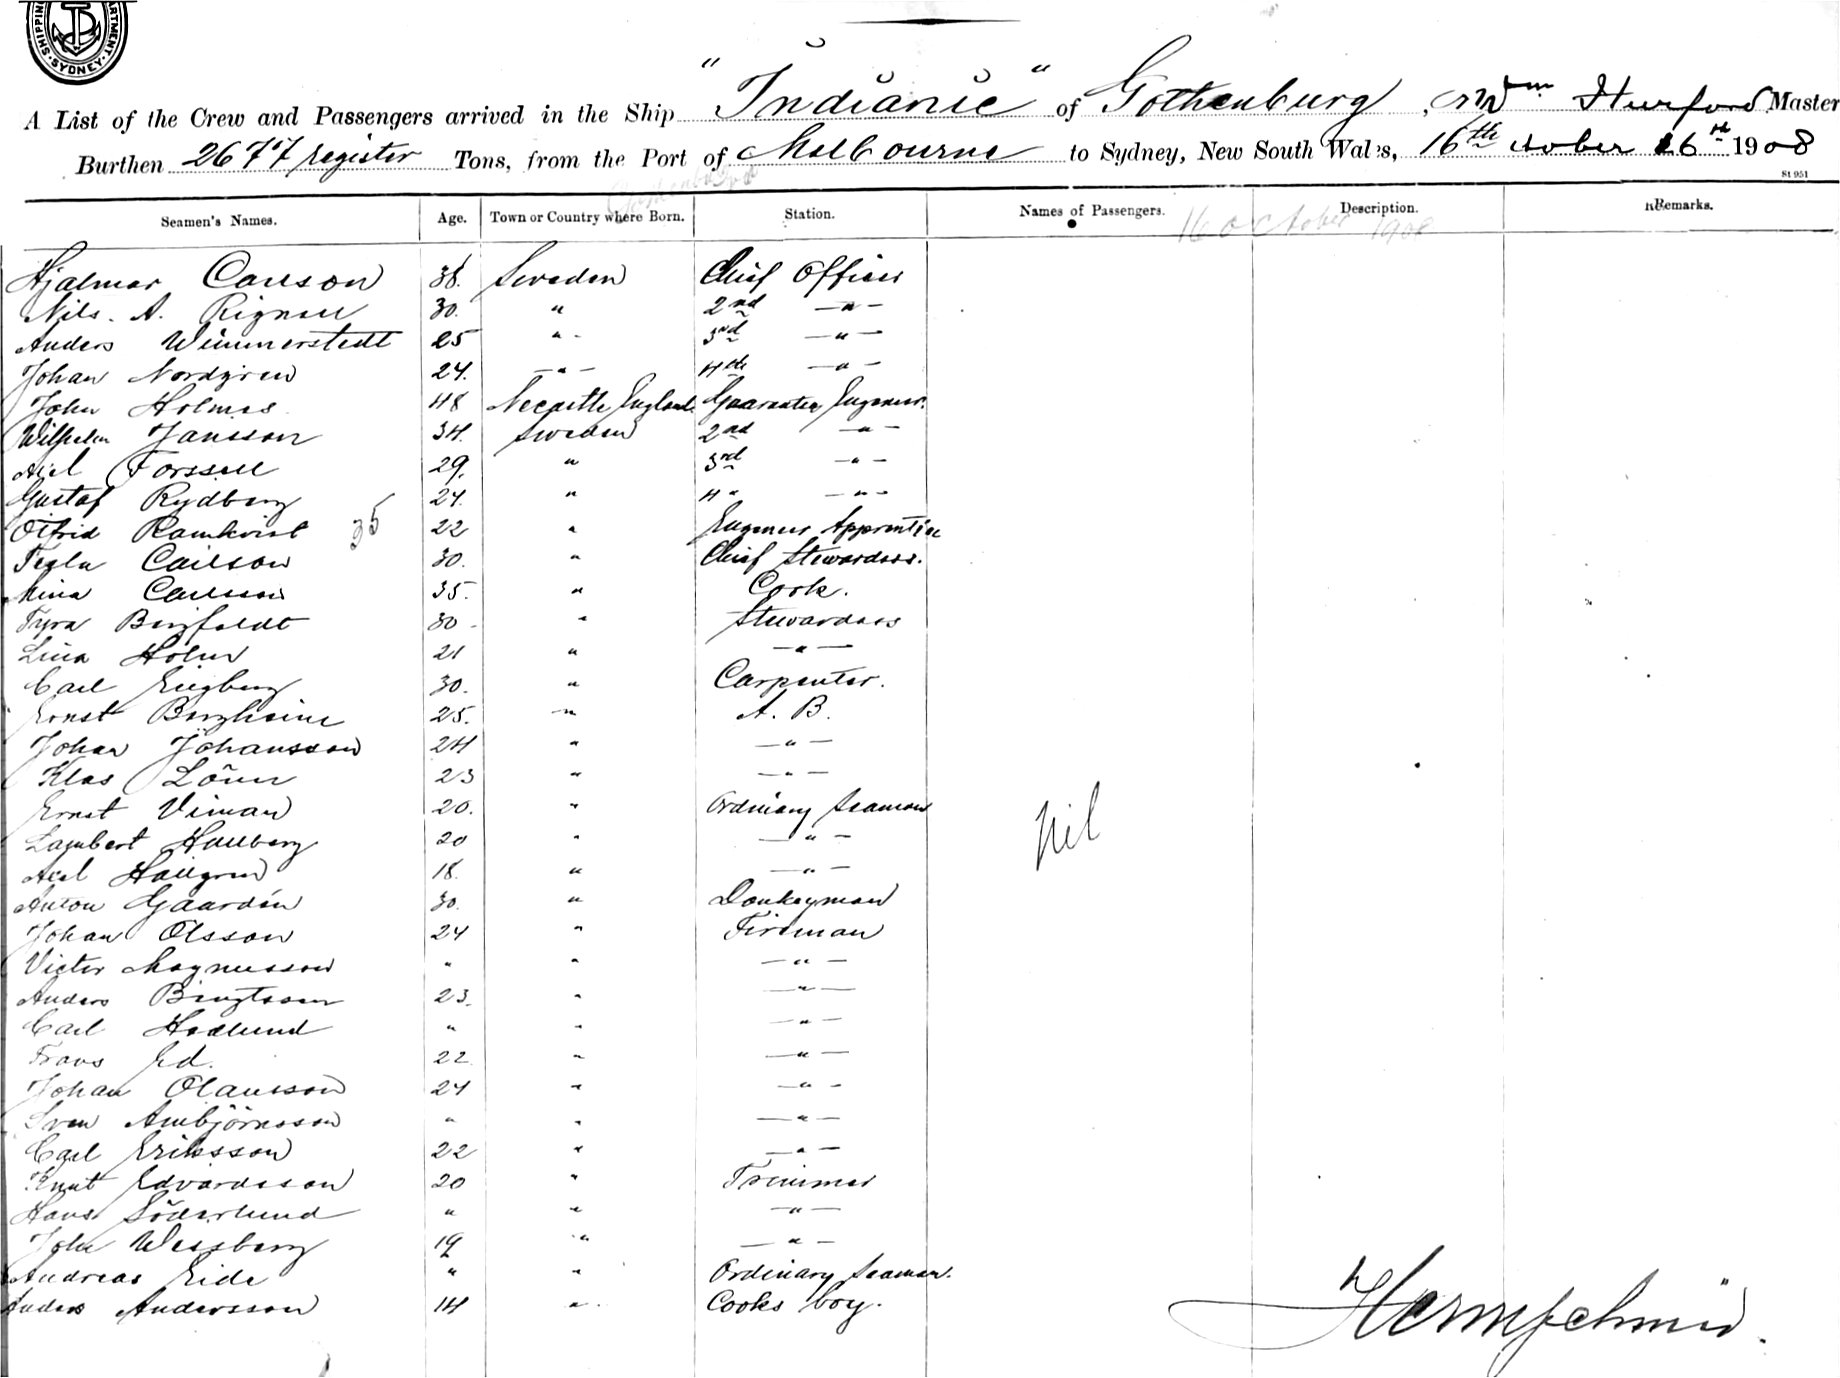 SHIPPING DEPARTMENT. SYDNEY.
A List of the Crew and Passengers arrived in the Ship "Indianic" of Gothenburg, Wm Hurford Master
Burthen 2677 register Tons, from the Port of Melbourne to Sydney, New South Wales, 16th October 1908
St 951
Seamen's Names. Age. Town or Country where Born. Station. Names of Passengers. Description. Remarks.
16 October 1908
Hjalmar Carlson 38. Sweden Chief Officer
Nils. A. Rignell 30. " 2nd —"—
Anders Wimmerstedt 25 " - 3rd —"—
Johan Nordgren 24. —"— 4th —"—
John Holmes 48 England Guarantee Engeneer.
Wilhelm Jansson 34. Sweden 2nd —"—
Axel Forssell 29. " 3rd —"—
Gustaf Rydberg 24. " 4" —"—
Otfrid Ramkvist 35 22 " Engeneer Apprentice
Tegla Carlson 30. " Chief Stewardess.
Mina Carlsson 35. " Cook.
Tyra Bergfeldt 30 - " Stewardess
Lina Holm 21 " —"—
Carl Engberg 30. " Carpenter.
Ernst Bergheim 25. —" A. B.
Johan Johansson 24 " —"—
Klas Lönn 23 " —"—
Ernst Viman 20. " Ordinary Seaman
Lambert Hallberg 20 " —"—
Nil
Axel Hallgren 18. " —"—
Anton Gaardén 30. " Donkeyman
Johan Olsson 24 " Fireman
Victor Magnusson " " —"—
Anders Bengtsson 23. " —"—
Carl Hedlund " " —"—
Frans Ed. 22 " —"—
Johan Olausson 24 " —"—
Sven Ambjörnsson " " —"—
Carl Eriksson 22 " —"—
Knut Edvardsson 20 " Trimmer
Hans Söderlund " " —"—
John Wessberg 19 " —"—
Andreas Eide " " Ordinary Seaman.
Anders Andersson 14 " Cooks boy.